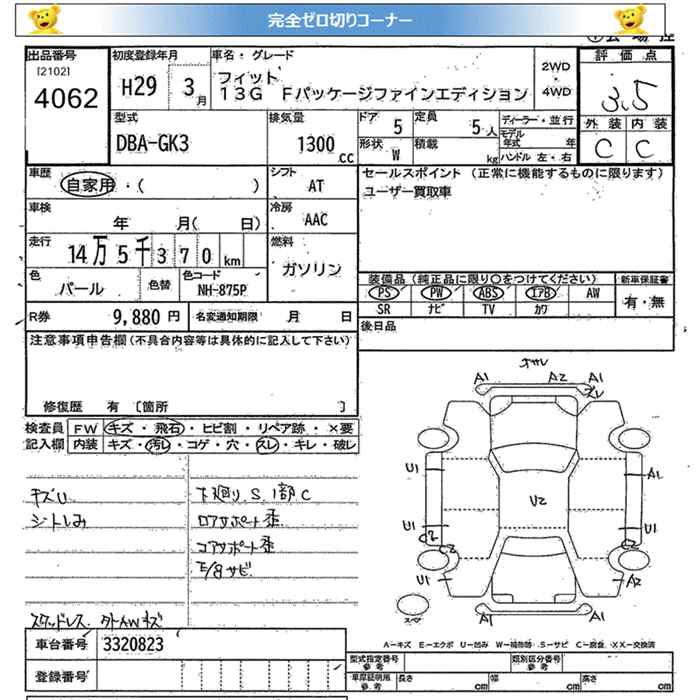 完全ゼロ切りコーナー
出品番号
[2102]
4062
初度登録年月
H29 3月
車名・グレード
フィット
13G Fパッケージファインエディション
2WD
・
4WD
評価点
3.5
外装 内装
C C
型式
DBA-GK3
排気量
1300 CC
ドア 5
定員 5人
形状 W
積載 kg
ディーラー・並行
モデル年式 年
ハンドル 左・右
車歴
自家用・( )
シフト
AT
セールスポイント (正常に機能するものに限ります)
ユーザー買取車
車検
年 月( 日)
冷房
AAC
走行
14万5千370km
燃料
ガソリン
色
パール
色替
色コード
NH-875P
装備品 (純正品に限り○をつけてください)
新車保証書
PS PW ABS エアB AW
有・無
SR ナビ TV カワ
R券 9,880円
名変通知期限 月 日
後日品
注意事項申告欄(不具合内容等は具体的に記入して下さい)
修復歴 有 [箇所 ]
検査員記入欄
FW キズ・飛石・ヒビ割・リペア跡・×要
内装 キズ・汚レ・コゲ・穴・スレ・キレ・破レ
キズU
シートしみ
下廻り S、1部C
ロアサポート歪
コアサポート歪
F/8サビ
スタッドレス
A1 A2 A1
スレ
U1 A1
U2
U1 U1
U1 A2
A1 A1
スペア
A-キズ E-エクボ U-凹み W-補修跡 S-サビ C-腐食 XX-交換済
車台番号 3320823
登録番号
型式指定番号
参考
類別区分番号
参考
車庫証明用
参考
長さ cm 幅 cm 高さ cm